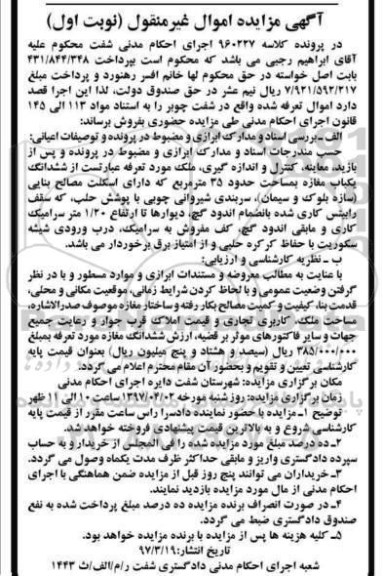 آگهی مزایده اموال غیرمنقول (نوبت اول)
در پرونده کلاسه ۹۶۰۲۲۷ اجرای احکام مدنی شفت محکوم علیه
آقای ابراهیم رجبی می باشد که محکوم است بپرداخت ۴۳۱/۸۴۴/۳۴۸
بابت اصل خواسته در حق محکوم لها خانم افسر رهنورد و پرداخت مبلغ
۷/۹۲۱/۵۹۲/۲۱۷ ریال نیم عشر در حق صندوق دولت، لذا این اجرا قصد
دارد اموال تعرفه شده واقع در شفت چوبر را به استناد مواد ۱۱۳ الی ۱۴۵
قانون اجرای احکام مدنی طی مزایده حضوری بفروش برساند:
الف ـ بررسی اسناد و مدارک ابرازی و مضبوط در پرونده و توصیفات اعیانی:
حسب مندرجات اسناد و مدارک ابرازی و مضبوط در پرونده و پس از
بازید، معاینه، کنترل و اندازه گیری، ملک مورد تعرفه عبارتست از ششدانگ
یکباب مغازه بمساحت حدود ۳۵ مترمربع که دارای اسکلت مصالح بنایی
(سازه بلوک و سیمان)، سربندی شیروانی چوبی با پوشش حلب، که سقف
رابیتس کاری شده بانضمام اندود گچ، دیوارها تا ارتفاع ۱/۲۰ متر سرامیک
کاری و مابقی اندود گچ، کف مفروش به سرامیک، درب ورودی شیشه
سکوریت با حفاظ کرکره حلبی و از امتیاز برق برخوردار می باشد.
ب ـ نظریه کارشناسی و ارزیابی:
با عنایت به مطالب معروضه و مستندات ابرازی و موارد مسطور و با در نظر
گرفتن وضعیت عمومی و با لحاظ کردن شرایط زمانی، موقعیت مکانی و محلی،
قدمت بنا، کیفیت و کمیت مصالح بکار رفته و ساختار مغازه موصوف صدرالاشاره،
مساحت ملک، کاربری تجاری و قیمت املاک قرب جوار و رعایت جمیع
جهات و سایر فاکتورهای موثر بر قضیه، ارزش ششدانگ مغازه مورد تعرفه بمبلغ
۳۸۵/۰۰۰/۰۰۰ ریال (سیصد و هشتاد و پنج میلیون ریال) بعنوان قیمت پایه
کارشناسی تعیین و تقویم و بحضور آن مقام محترم اعلام می گردد.
مکان برگزاری مزایده: شهرستان شفت دایره اجرای احکام مدنی
زمان برگزاری مزایده: روز شنبه مورخه ۱۳۹۷/۰۴/۰۲ ساعت ۱۰ الی ۱۱ ظهر
توضیح ۱ـ مزایده با حضور نماینده دادسرا راس ساعت مقرر از قیمت پایه
کارشناسی شروع و به بالاترین قیمت پیشنهادی فروخته خواهد شد.
۲ـ ده درصد مبلغ مورد مزایده شده را فی المجلس از خریدار و به حساب
سپرده دادگستری واریز و مابقی حداکثر ظرف مدت یکماه وصول می گردد.
۳ـ خریداران می توانند پنج روز قبل از مزایده ضمن هماهنگی با اجرای
احکام مدنی از مال مورد مزایده بازدید نمایند.
۴ـ در صورت انصراف برنده مزایده ده درصد مبلغ پرداخت شده به نفع
صندوق دادگستری ضبط می گردد.
۵ـ کلیه هزینه ها پس از مزایده با برنده مزایده خواهد بود.
تاریخ انتشار: ۹۷/۳/۱۹
شعبه اجرای احکام مدنی دادگستری شفت ر/م/الف/ث ۱۴۴۳